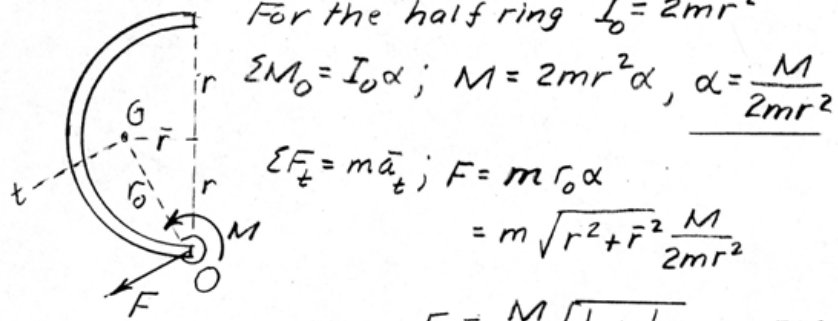 For the half ring I₀ = 2mr²
ΣM₀ = I₀α ; M = 2mr²α, α = M/2mr²
ΣFₜ = māₜ ; F = m r₀ α
= m √(r² + r̄²) M/2mr²
r
G
r̄
t
r₀
r
M
O
F